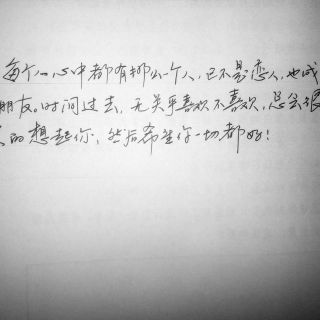 每个人心中都有那么一个人,已不是恋人,也成
朋友。时间过去,无关乎喜欢不喜欢,总会很
的想起你,然后希望你一切都好!